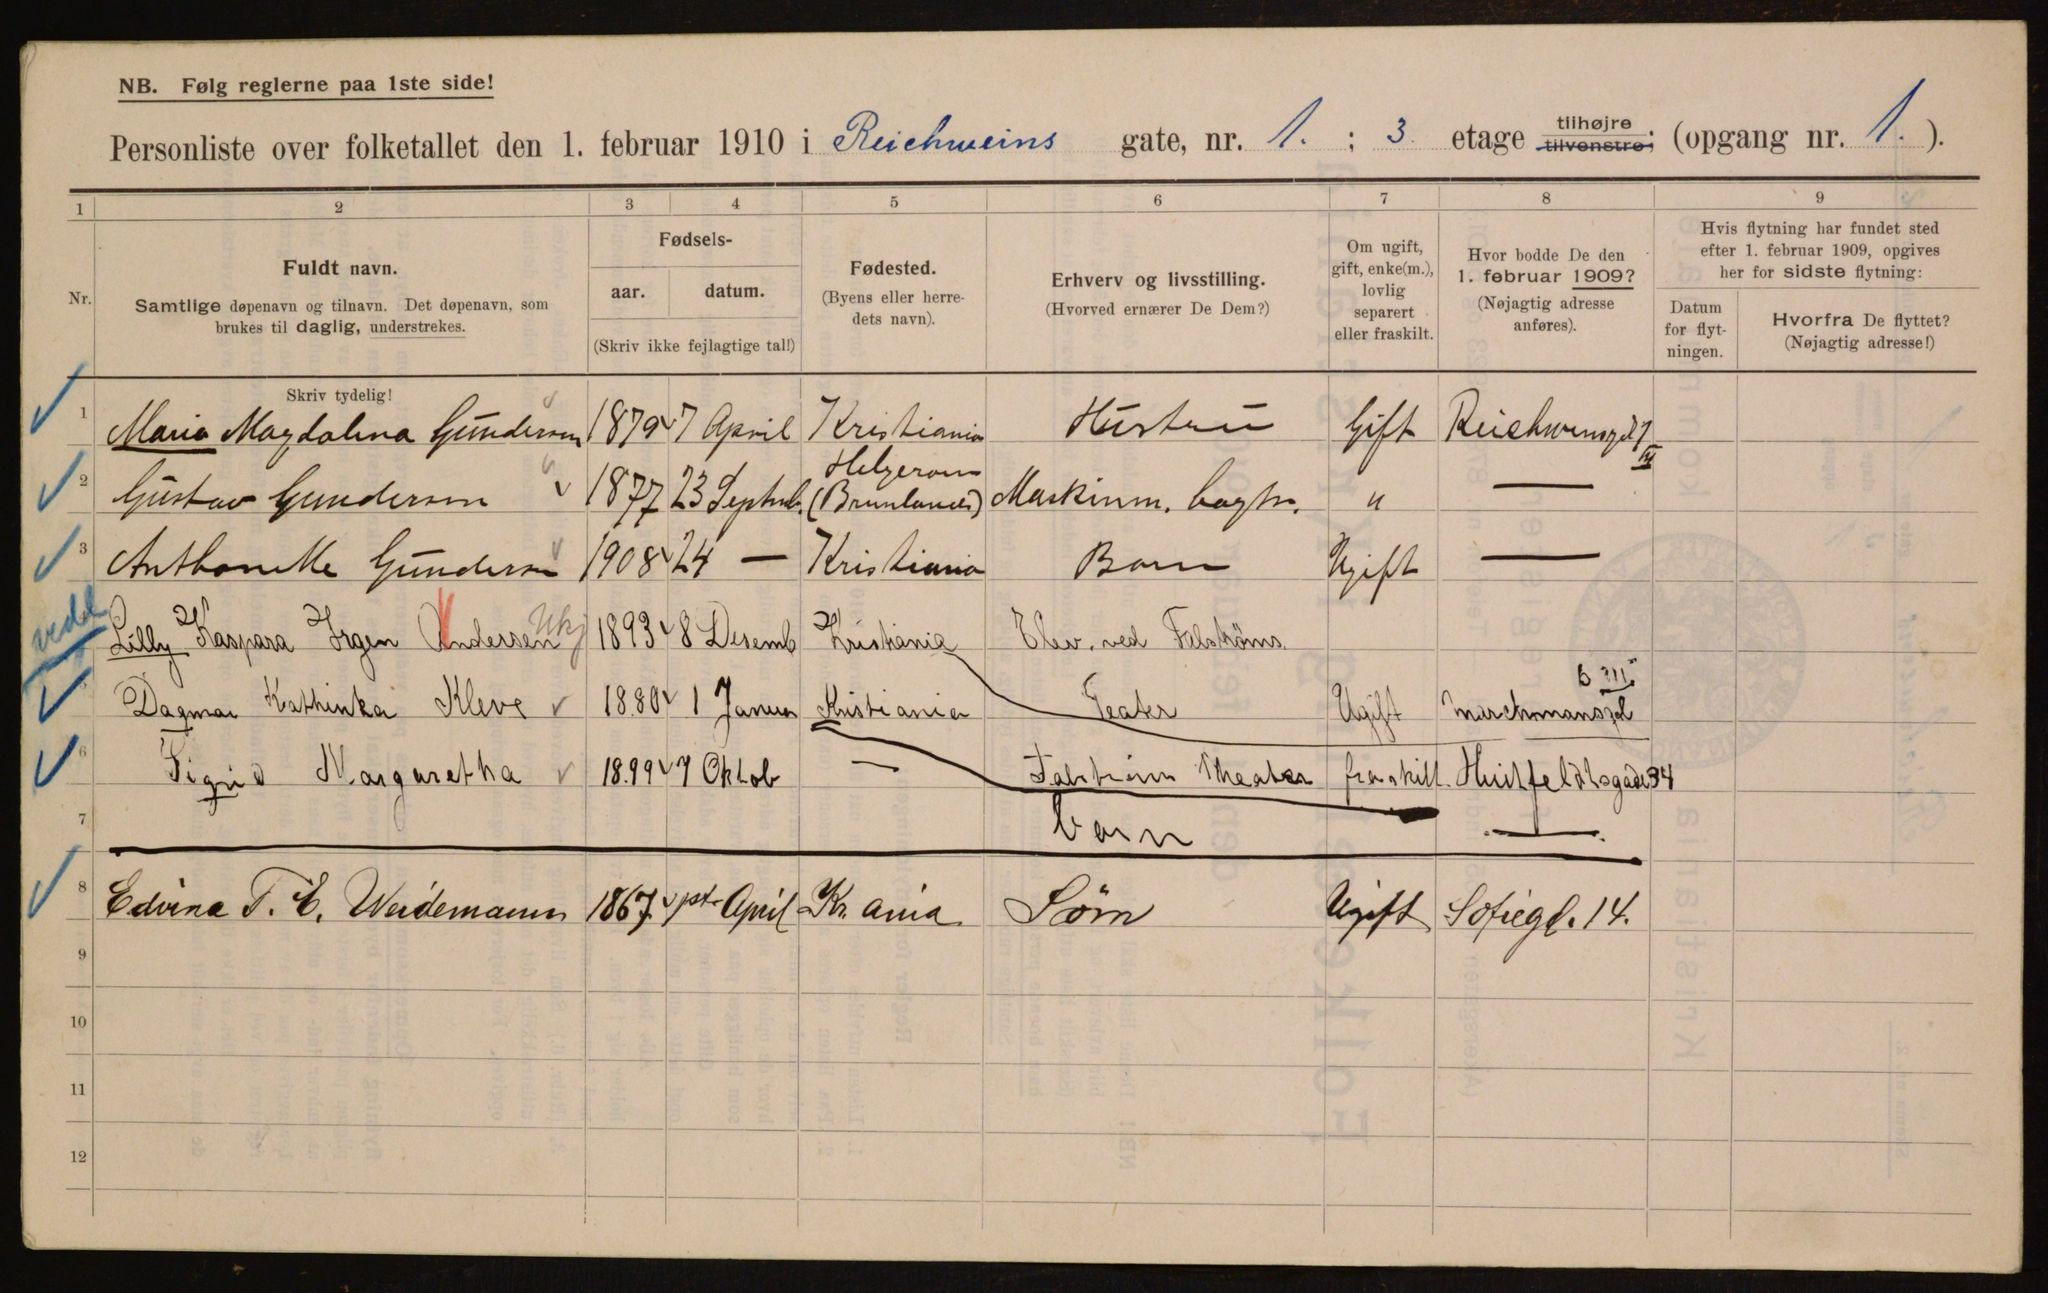 NB. Følg reglerne paa 1ste side!
Personliste over folketallet den 1. februar 1910 i Reichweins gate, nr. 1. ; 3. etage tilhøjre tilvenstre; (opgang nr. 1. ).
1 2 3 4 5 6 7 8 9
Nr.
Fuldt navn.
Samtlige døpenavn og tilnavn. Det døpenavn, som
brukes til daglig, understrekes.
Fødsels-
aar. datum.
(Skriv ikke fejlagtige tal!)
Fødested.
(Byens eller herre-
dets navn).
Erhverv og livsstilling.
(Hvorved ernærer De Dem?)
Om ugift,
gift, enke(m.),
lovlig
separert
eller fraskilt.
Hvor bodde De den
1. februar 1909?
(Nøjagtig adresse
anføres).
Hvis flytning har fundet sted
efter 1. februar 1909, opgives
her for sidste flytning:
Datum
for flyt-
ningen.
Hvorfra De flyttet?
(Nøjagtig adresse!)
Skriv tydelig!
1 Maria Magdalena Gundersen 1879 7 April Kristiania Hustru Gift
2 Gustav Gundersen 1877 23 Septemb. Helgeroen (Brunlanes) Maskinm. bogtr. " —
3 Anthonette Gundersen 1908 24 — Kristiania Barn Ugift —
Lilly Kaspara Irgen Andersen 1893 8 Desemb Kristiania Elev. ved Falströms
Dagmar Kathinka Kleve 1880 1 Januar Kristiania Teater Ugift
6 Sigrid Margaretha 1899 7 Oktob — Falströms Theater fraskilt. Huitfeldtsgade 34
7 barn —
8 Edvina T. E. Weidemann 1867 1ste April Kr. ania Söm Ugift Sofiegt. 14.
9
10
11
12